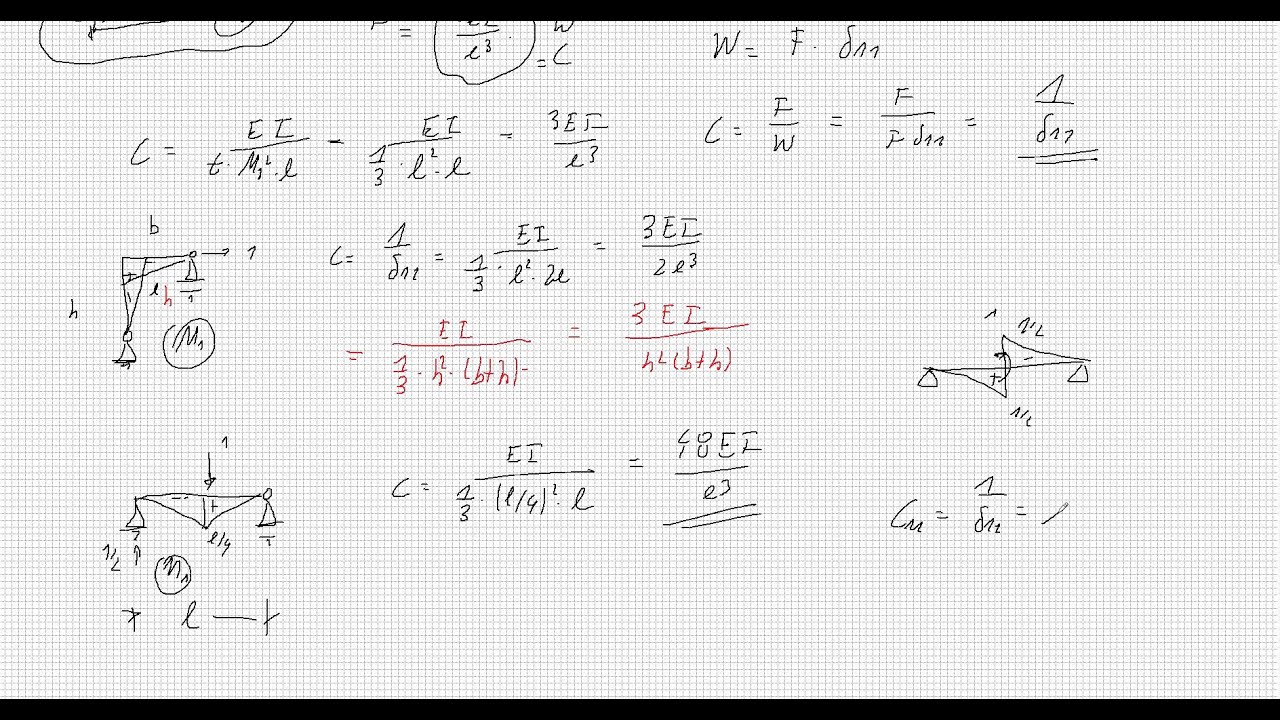 l³ = C
W = F · δ₁₁
C = EI / (t · M₁² · l) − EI / (1/3 · l² · l) = 3EI / l³
C = F / W = F / (F δ₁₁) = 1 / δ₁₁
b
1
l
h
1
h
M₁
C = 1 / δ₁₁ = EI / (1/3 · l² · 2l) = 3EI / 2l³
= EI / (1/3 · h² · (b+h)) = 3EI / h²(b+h)
1
1/2
−
+
1/2
1
−
+
l/4
1/2
M₁
l
C = EI / (1/3 · (l/4)² · l) = 48EI / l³
Cₘ = 1 / δ₁₁ =